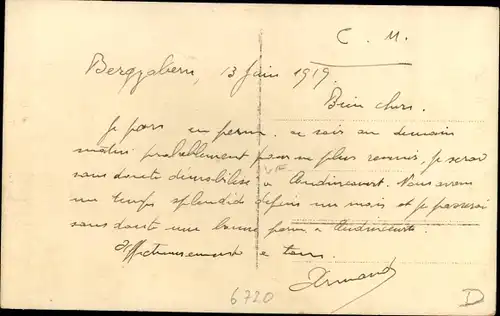 C. M.
Bergzabern, 13 Juin 1919.
Bien chers.
Je pars en perm. ce soir ou demain
matin probablement pour ne plus revenir, je serai
sans doute démobilisé à Audincourt. Nous avons
un temps splendide depuis un mois et je passerai
sans doute une bonne perm à Audincourt.
Affectueusement à tous.
Armand
6720
D